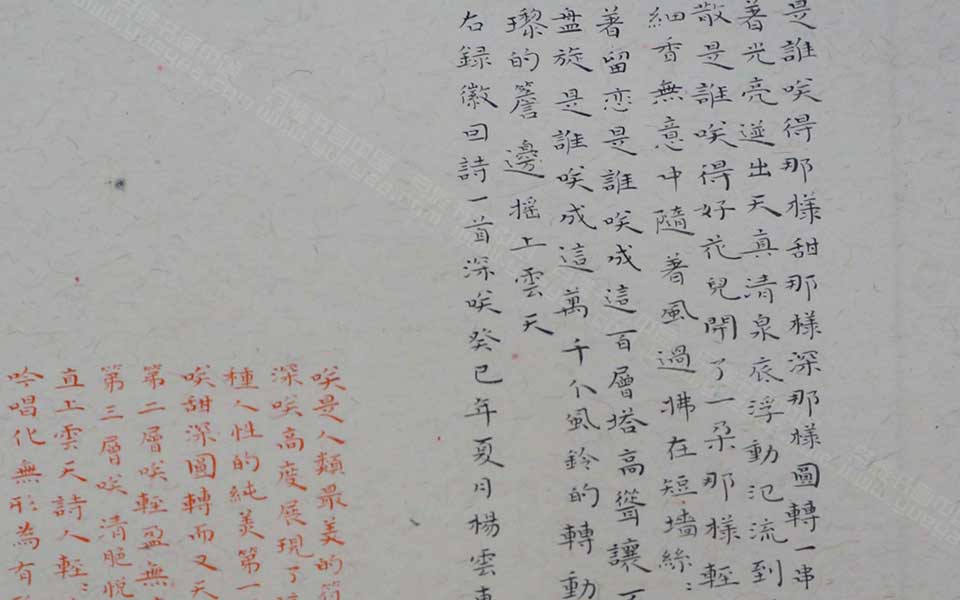 是誰咲得那様甜那様深那様圓轉一串
著光亮迸出天真清泉底浮動汜流到
散是誰咲得好花兒開了一朵那様輕
細香無意中隨著風過拂在短墻絲〻
著留恋是誰咲成這百層塔高聳讓
盘旋是誰咲成這萬千个風鈴的轉動
瓈的簷邊摇上雲天
右録徽因詩一首深咲癸巳年夏月楊雲
咲是人類最美的符
深咲高度展現了
種人性的純美第一
咲甜深圓轉而又天
第二層咲輕盈無
第三層咲清脆悦
直上雲天詩人輕〻
吟唱化無形為有